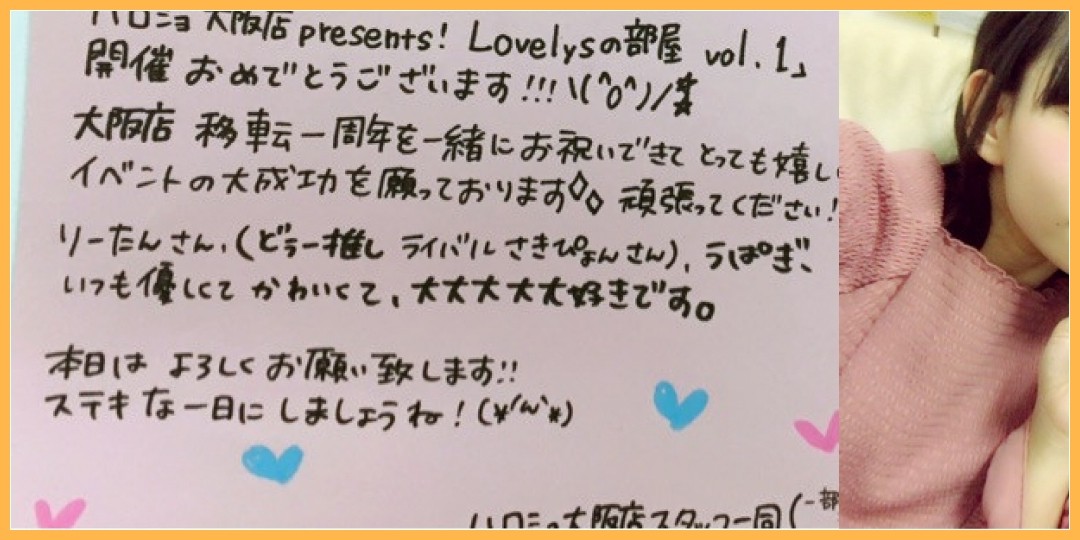 ハロショ大阪店presents! Lovelysの部屋 vol.1」
開催おめでとうございます!!!\(^o^)/
大阪店 移転一周年を一緒にお祝いできて とっても嬉し
イベントの大成功を願っております◇◇ 頑張ってください!
りーたんさん、(どぅー推し ライバル さきぴょんさん)、うぱぎ、
いつも優しくて かわいくて、大大大大大好きです。
本日は よろしくお願い致します!!
ステキな一日にしましょうね!(*'ω'*)
ハロショ大阪店スタッフ一同(一部